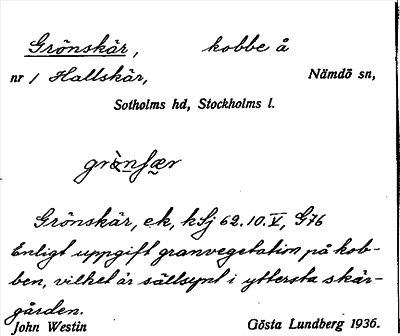 Grönskär, kobbe å
nr 1 Hallskär, Nämdö sn,
Sotholms hd, Stockholms l.
Grönskär, ek, kSj 62.10.V, G76
Enligt uppgift granvegetation på kob-
ben, vilket är sällsynt i yttersta skär-
gården.
John Westin Gösta Lundberg 1936.